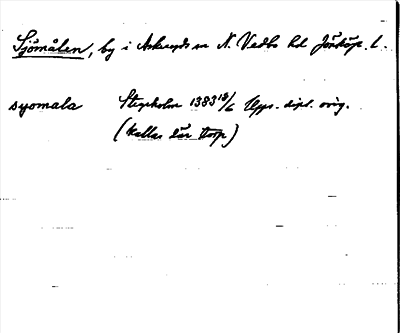 Sjömålen, by i Askeryds sn N. Vedbo hd Jönköp. l.
syomala Stegeholm 1383 13/6 Upps. dipl. orig.
(kallas där torp)